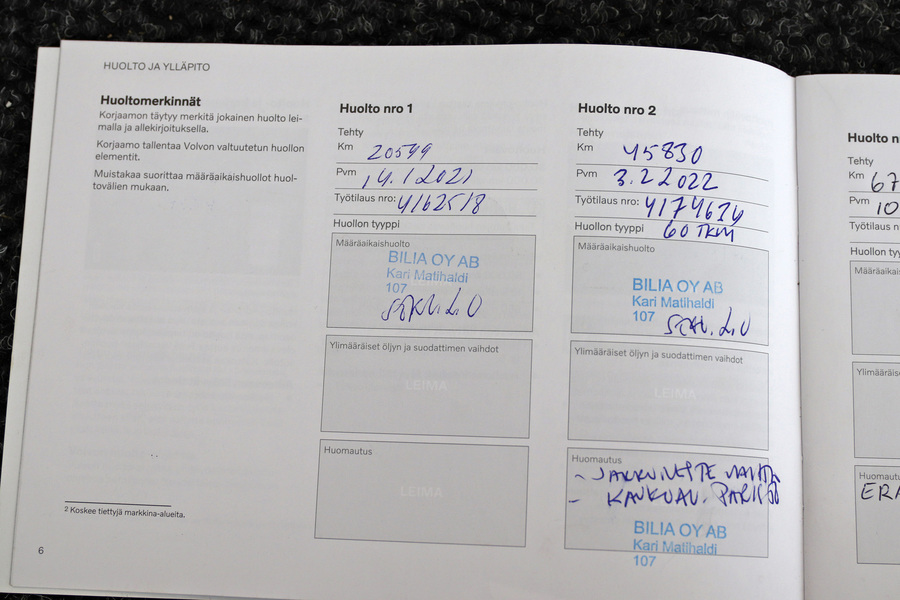 HUOLTO JA YLLÄPITO
Huoltomerkinnät
Korjaamon täytyy merkitä jokainen huolto lei-
malla ja allekirjoituksella.
Korjaamo tallentaa Volvon valtuutetun huollon
elementit.
Muistakaa suorittaa määräaikaishuollot huol-
tovälien mukaan.
2 Koskee tiettyjä markkina-alueita.
6
Huolto nro 1
Tehty
Km 20599
Pvm 14.1 2021
Työtilaus nro: 4162518
Huollon tyyppi
Määräaikaishuolto
BILIA OY AB
Kari Matihaldi
107
Ylimääräiset öljyn ja suodattimen vaihdot
LEIMA
Huomautus
LEIMA
Huolto nro 2
Tehty
Km 45830
Pvm 3.2 2022
Työtilaus nro: 4174674
Huollon tyyppi 60 TKM
Määräaikaishuolto
BILIA OY AB
Kari Matihaldi
107
Ylimääräiset öljyn ja suodattimen vaihdot
LEIMA
Huomautus
- JARRUNESTE
-
BILIA OY AB
Kari Matihaldi
107
Huolto n
Tehty
Km 67
Pvm 10
Työtilaus n
Huollon tyy
Määräaikais
Ylimääräise
Huomautu
ERA